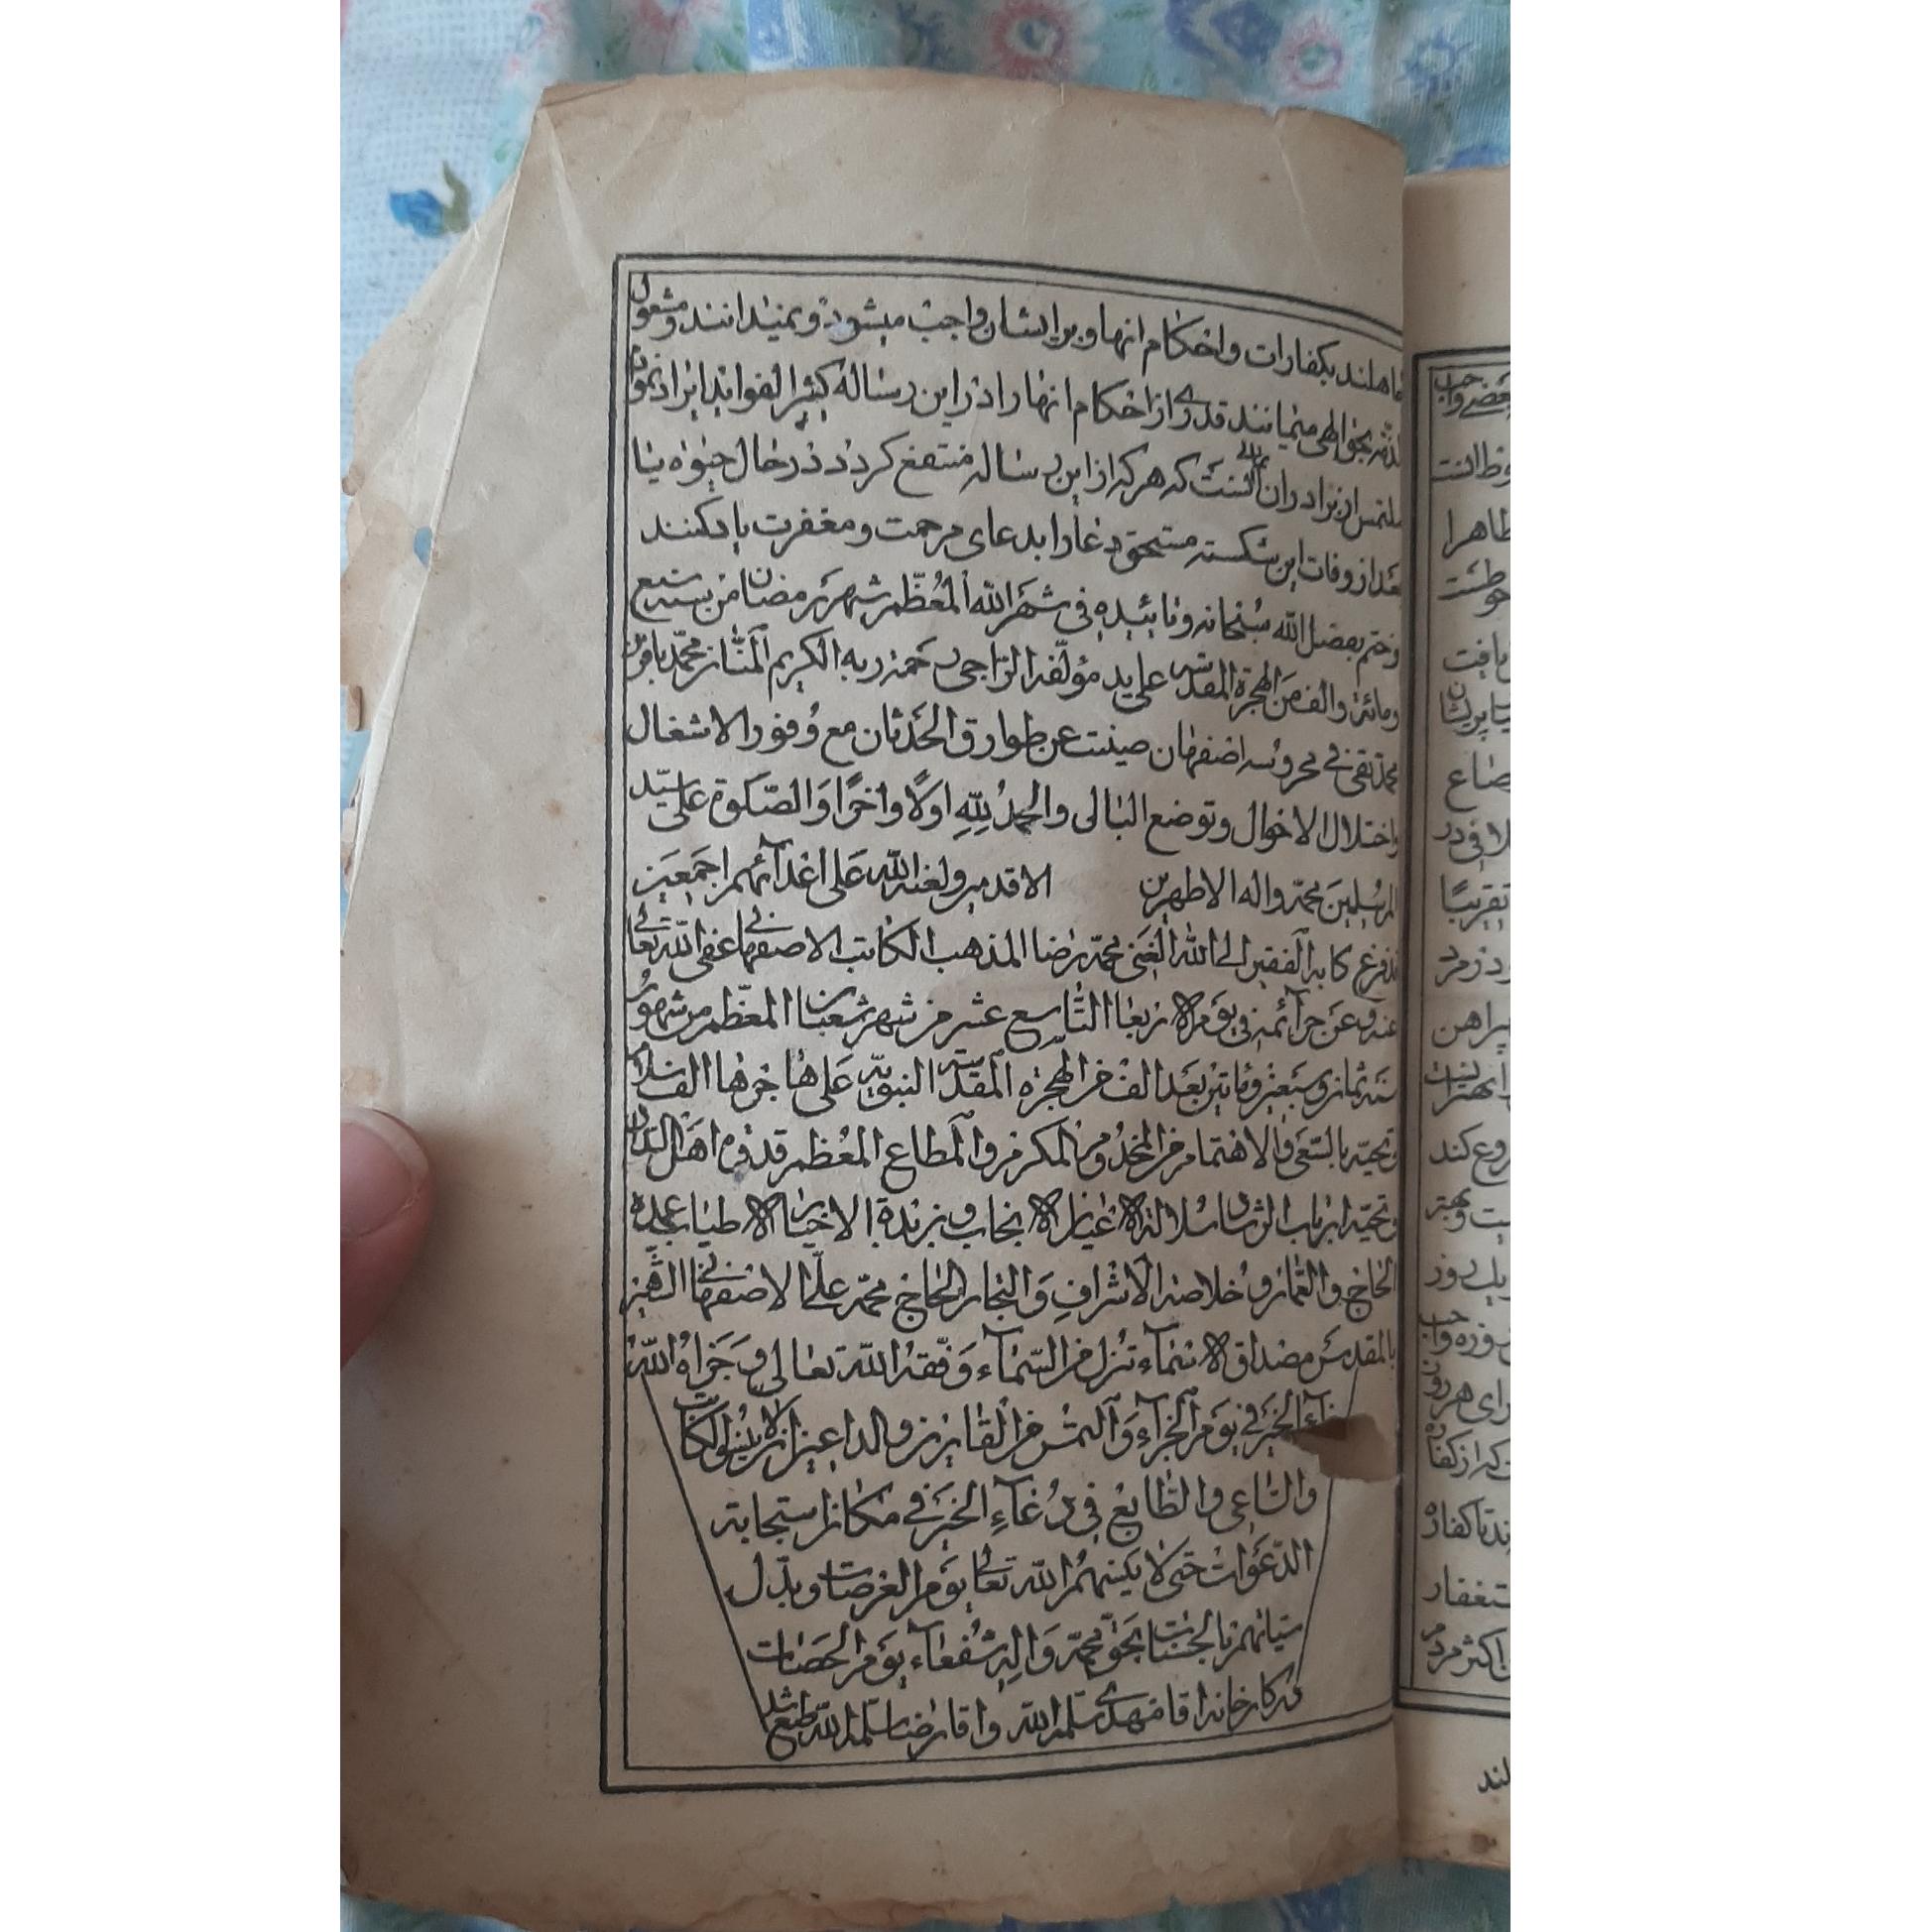 جاهلند بکفارات واحکام انها وبرایشان واجب میشود ونمیدانند ومشغول
الذمه بحق الهی میمانند قدری از احکام انها را در این رساله کثیر الفواید ایراد نموا
ملتمس از برادران ایمانی انست که هر که از این رساله منتفع کردد در حال حیوه یا
بعد از وفات این شکسته مستحق دعا را بدعای مرحمت ومغفرت یاد کنند
وختم بفضل الله سبحانه وتاییده فی شهر الله المعظم شهر رمضان من سنه تسع
ومائة والف من الهجرة المقدسه علی ید مؤلفه الراجی رحمة ربه الکریم المنان محمد باقر بن
محمد تقی فی محروسه اصفهان صینت عن طوارق الحدثان مع وفور الاشغال
واختلال الاحوال وتوضع البالی والحمد لله اولا واخرا والصلوة علی سید
المرسلین محمد واله الاطهرین الاقدمین ولعنة الله علی اعدائهم اجمعین
قد فرغ کاتبه الفقیر الی الله الغنی محمد رضا المذهب الکاتب الاصفهانی عفی الله تعالی
عنه وعن جرائمه فی یوم الاربعا التاسع عشر من شهر شعبان المعظم من شهور
سنه ثمان وسبعین ومائتین بعد الف من الهجرة المقدسه النبویه علی هاجرها الف سلام
وتحیه بالسعی والاهتمام من المخدوم المکرم والمطاع المعظم قدوه اهل
وتحیه ارباب سلالة الاعیان الانجاب وزبدة الاخیار الاطیاب عمده
الحاج والعمار وخلاصة الاشراف والتجار الحاج محمد علی الاصفهانی الشهیر
بالمقدس مصداق الاسماء تنزل من السماء وفقه الله تعالی وجزاه الله
جزاء الخیر فی یوم الجزاء والتمس من القارین والداعین ان لا ینسو الکاتب
والساعی والطابع فی دعاء الخیر فی مکان استجابة
الدعوات حتی لا ینسهم الله تعالی یوم العرصات وبدل
سیئاتهم بالحسنات بحق محمد واله شفعاء یوم
در کارخانه اقا مهدی سلمه الله واقا رضا سلمه الله طبع شد
بعضی واجب
طاهرا
یافت
صاع
تقریبا
پیراهن
یک روز
که از کفاره
اکثر مردم
لند